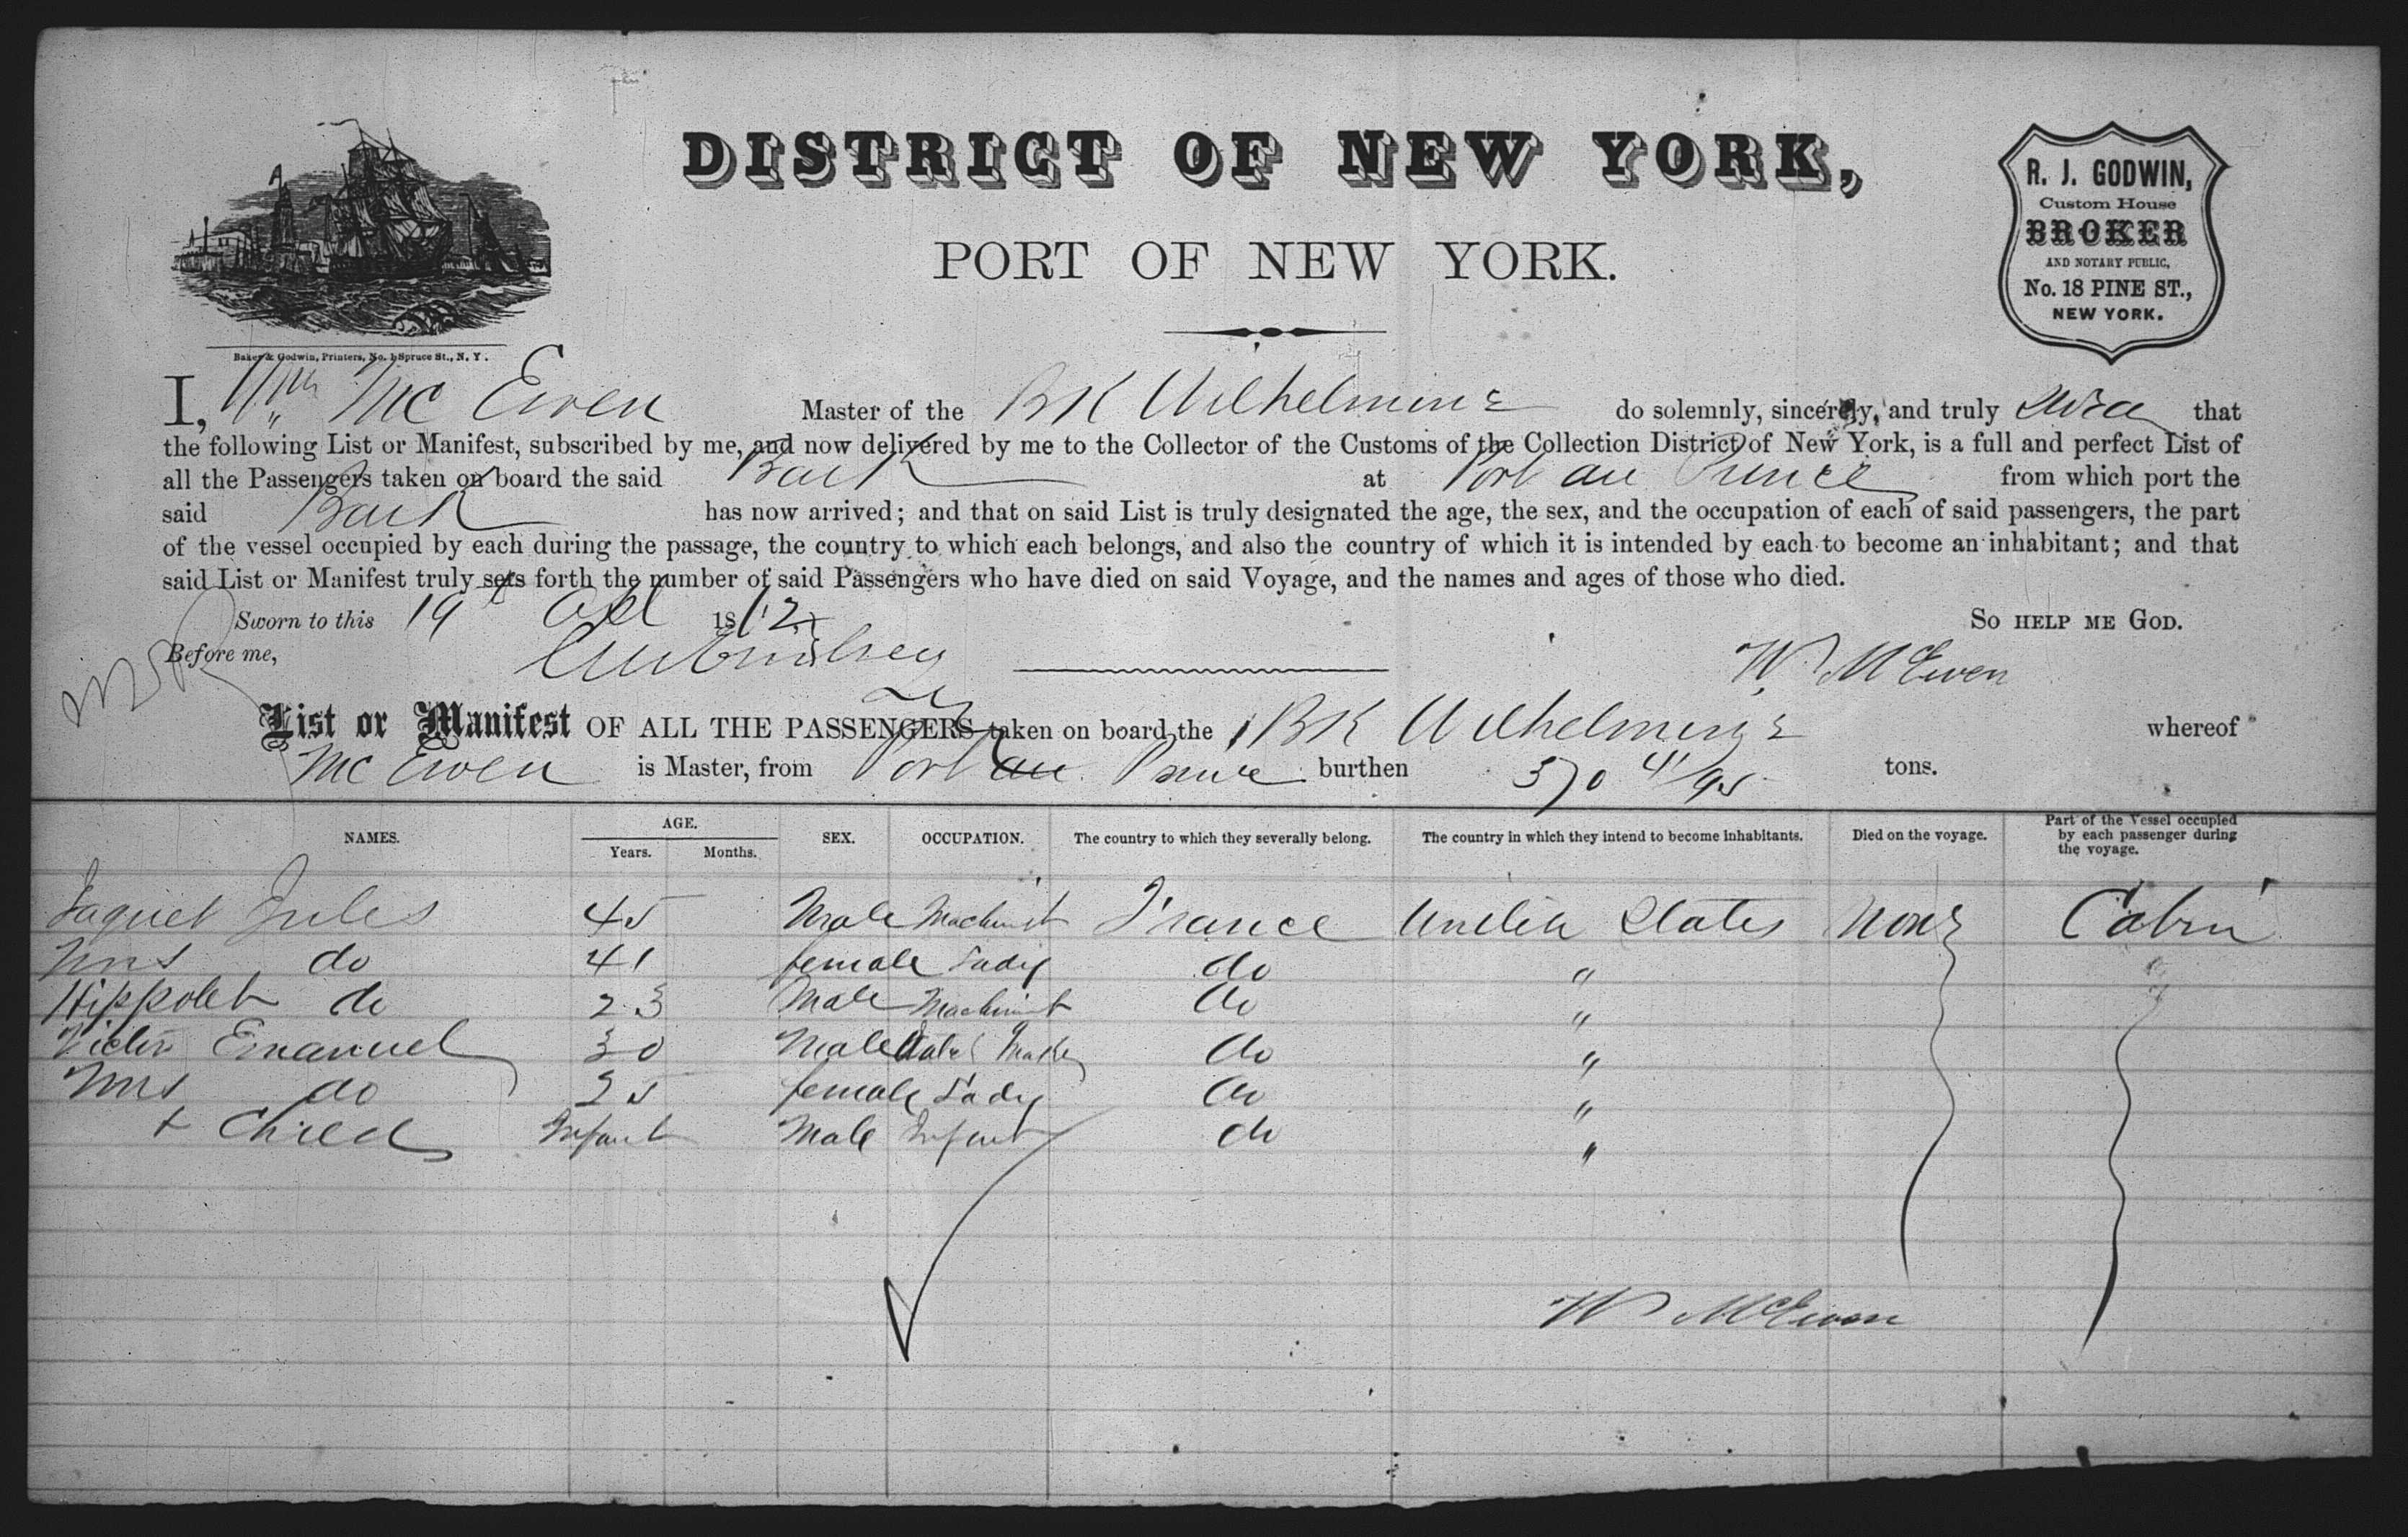 DISTRICT OF NEW YORK,
PORT OF NEW YORK.
R. J. GODWIN,
Custom House
BROKER
AND NOTARY PUBLIC,
No. 18 PINE ST.,
NEW YORK.
Baker & Godwin, Printers, No. 1 Spruce St., N. Y.
I, Wm Mc Ewen Master of the BK Wilhelmine do solemnly, sincerely, and truly that
the following List or Manifest, subscribed by me, and now delivered by me to the Collector of the Customs of the Collection District of New York, is a full and perfect List of
all the Passengers taken on board the said Bark at Port au Prince from which port the
said Bark has now arrived; and that on said List is truly designated the age, the sex, and the occupation of each of said passengers, the part
of the vessel occupied by each during the passage, the country to which each belongs, and also the country of which it is intended by each to become an inhabitant; and that
said List or Manifest truly sets forth the number of said Passengers who have died on said Voyage, and the names and ages of those who died.
Sworn to this 19 1862 So HELP ME GOD.
Before me, W McEwen
List or Manifest OF ALL THE PASSENGERS taken on board the BK Wilhelmine whereof
Mc Ewen is Master, from Port au Prince burthen 370 41/95 tons.
NAMES. AGE. Years. Months. SEX. OCCUPATION. The country to which they severally belong. The country in which they intend to become inhabitants. Died on the voyage. Part of the Vessel occupied by each passenger during the voyage.
Jaquet Jules 45 Male Machinist France United States None Cabin
Mrs do 41 female Lady do "
Hippolet do 23 Male Machinist do "
Victor Emanuel 30 Male Maker do "
Mrs do 25 female Lady do "
+ Child Infant Male Infant do "
W McEwen